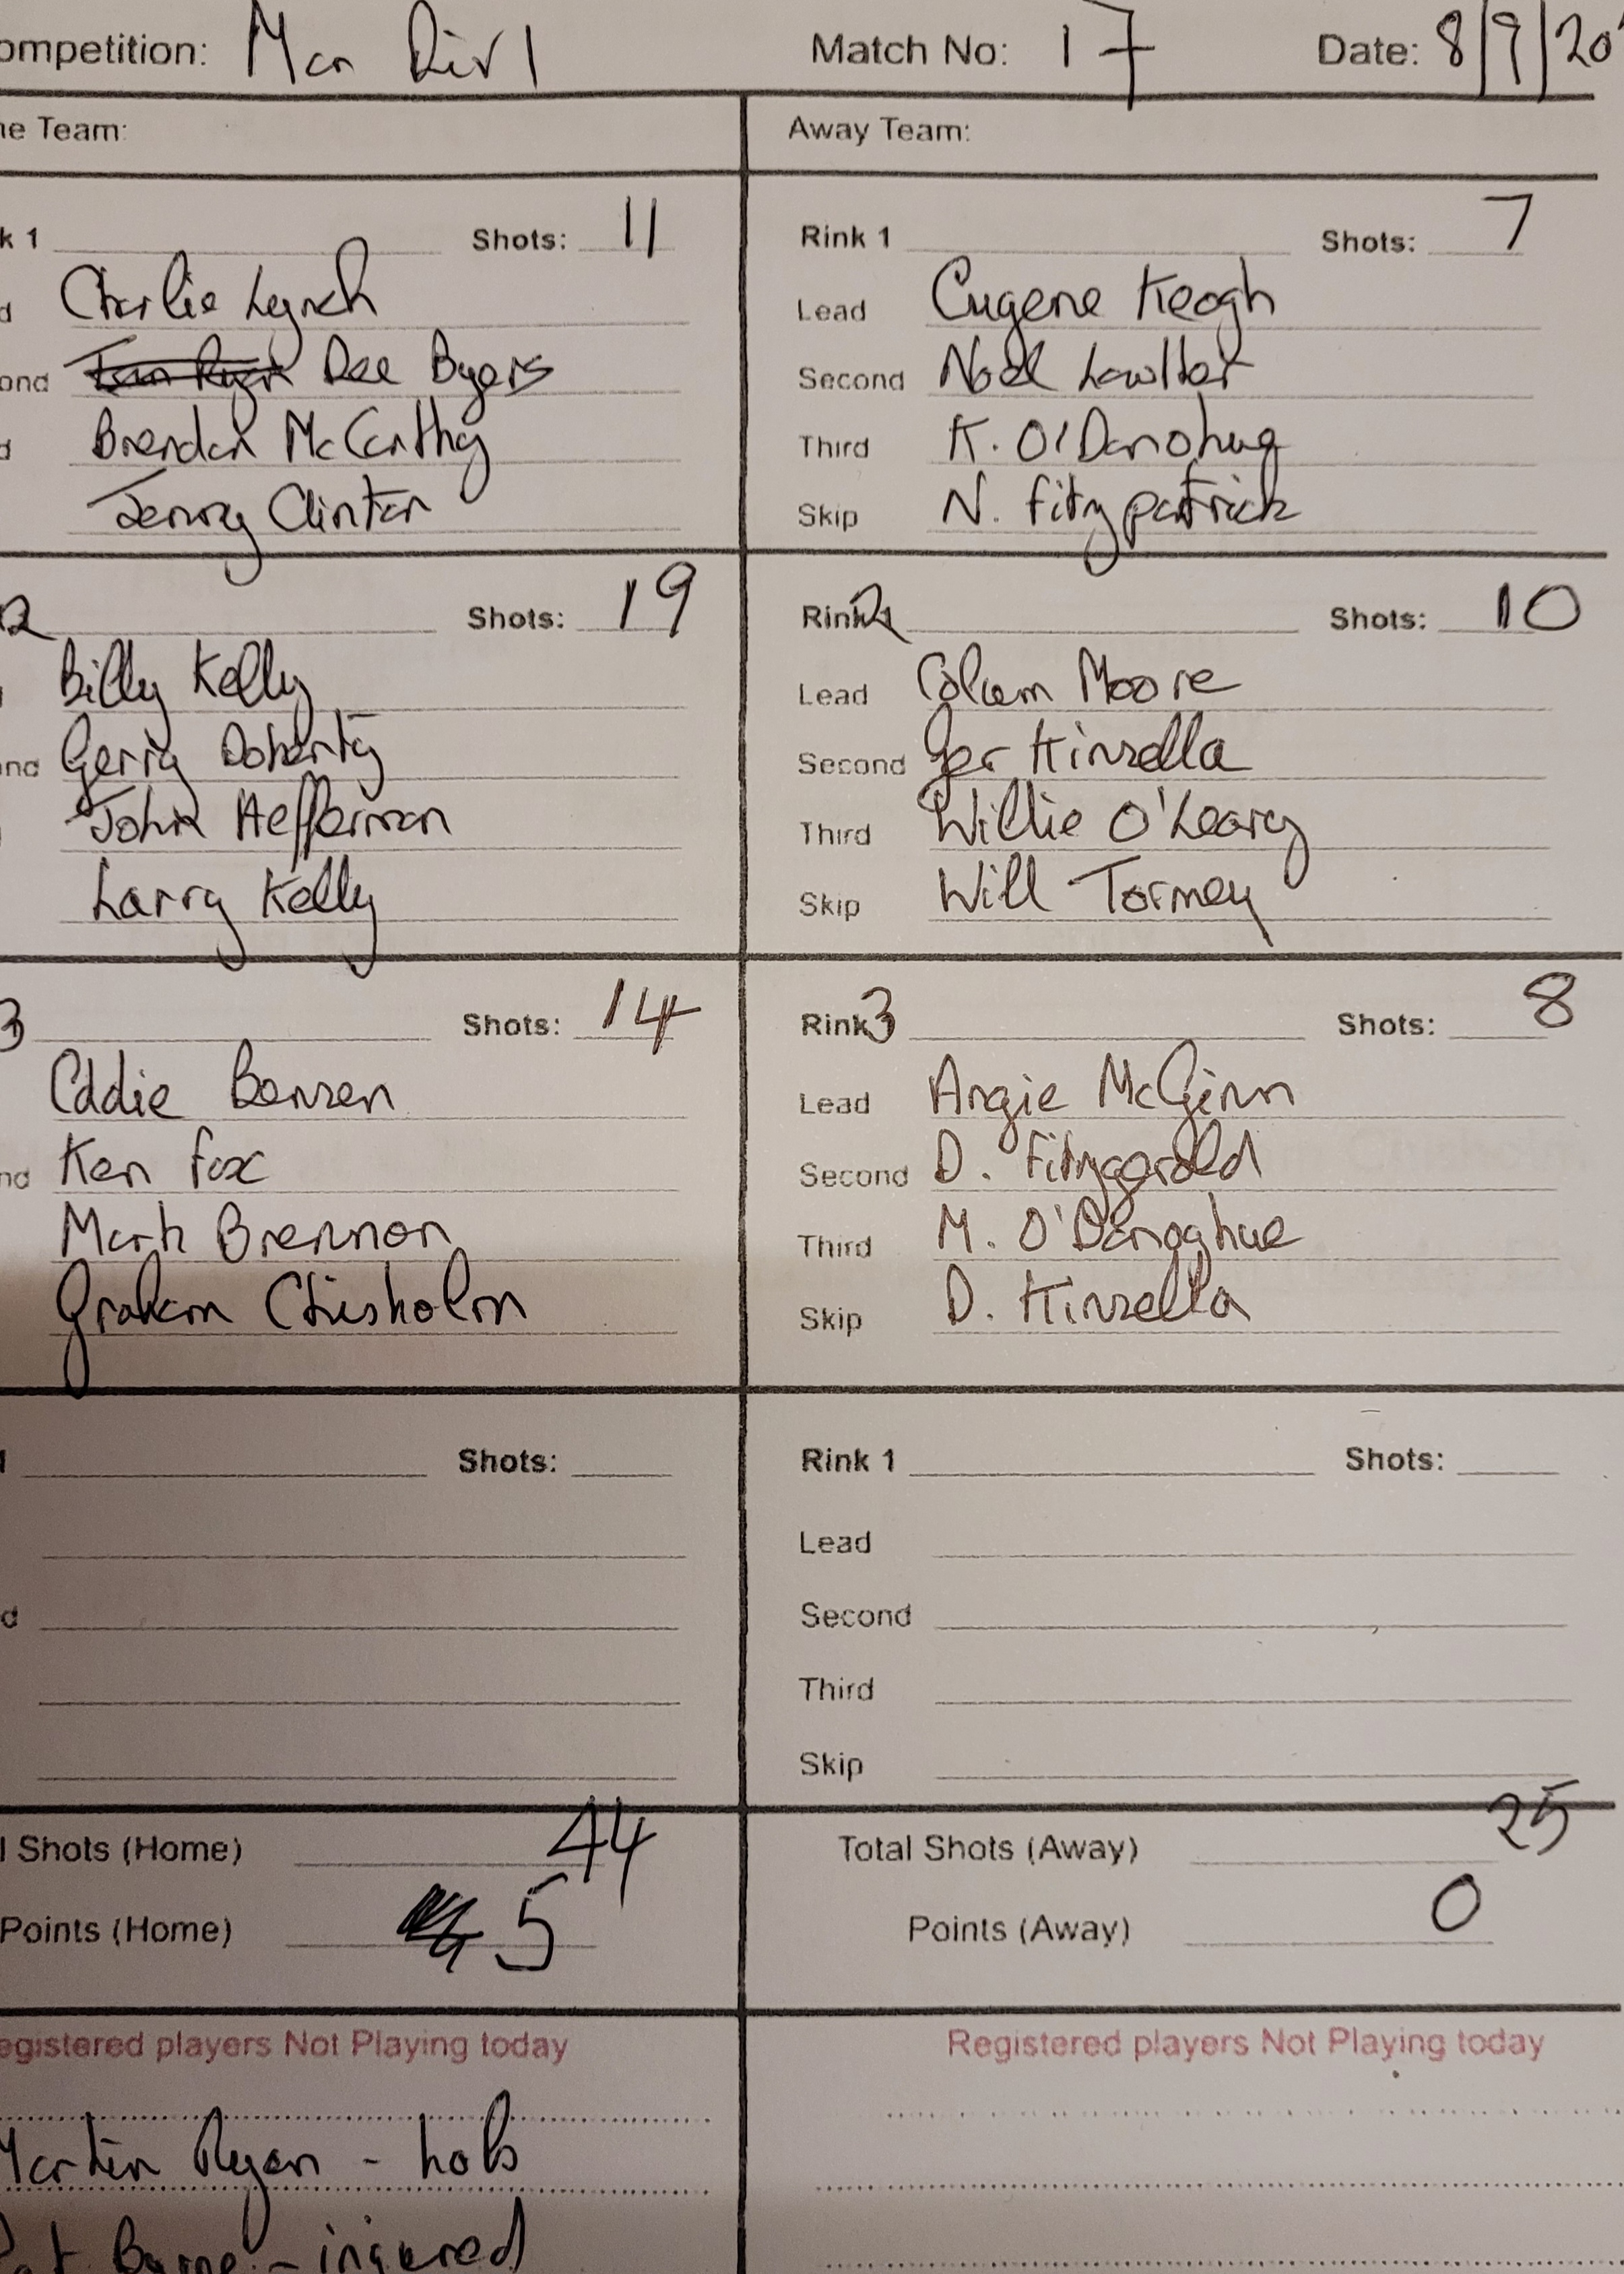 ompetition: Man Div 1 Match No: 17 Date: 8/9/20
ne Team: Away Team:
k 1 Shots: 11 Rink 1 Shots: 7
d Charlie Lynch Lead Eugene Keogh
ond Dee Byers Second Noel Lawlor
d Brendan McCarthy Third K. O'Donohue
Clinton Skip N. Fitzpatrick
2 Shots: 19 Rink 2 Shots: 10
Billy Kelly Lead Colum Moore
nd Gerry Doherty Second Ger Kinsella
John Heffernan Third Willie O'Leary
Larry Kelly Skip Will Tormey
3 Shots: 14 Rink 3 Shots: 8
Eddie Lead Angie McGinn
nd Ken Fox Second D. Fitzgerald
Mark Brennan Third M. O'Donoghue
Graham Chisholm Skip D. Kinsella
1 Shots: Rink 1 Shots:
Lead
d Second
Third
Skip
l Shots (Home) 44 Total Shots (Away) 25
Points (Home) 5 Points (Away) 0
egistered players Not Playing today Registered players Not Playing today
Martin Ryan - hols
Byrne - injured